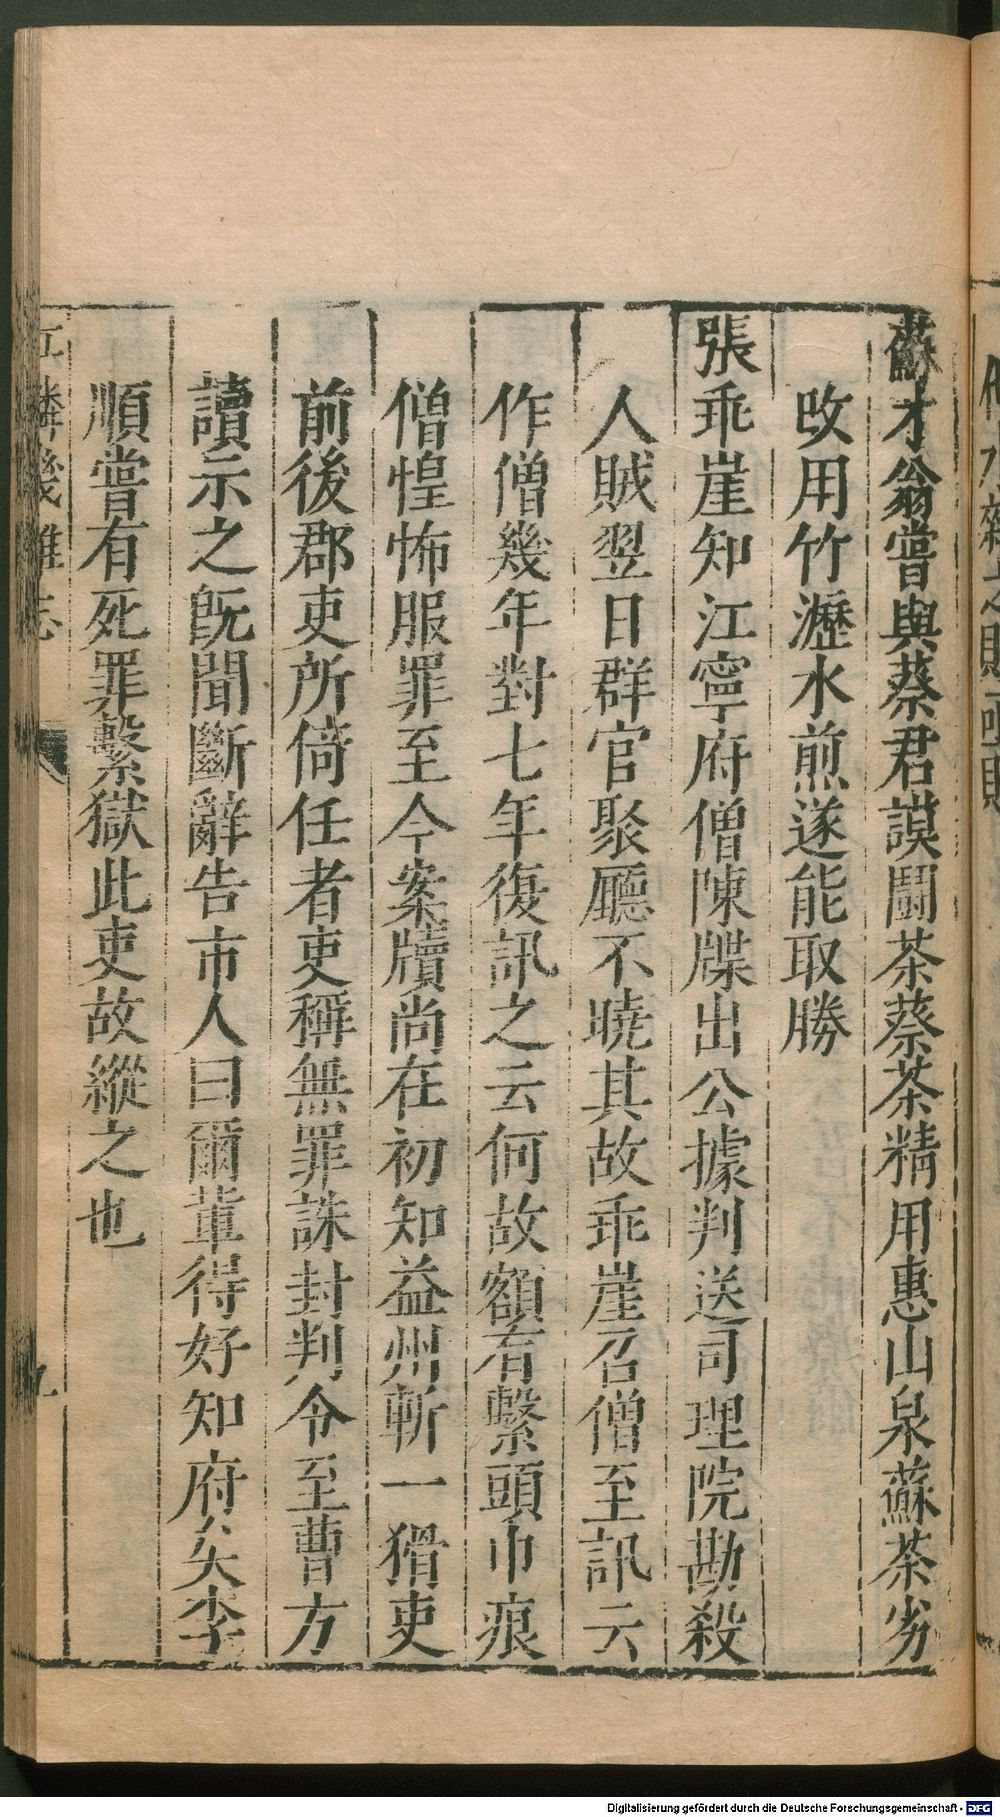 蘇才翁嘗與蔡君謨鬬茶蔡茶精用惠山泉蘇茶劣
改用竹瀝水煎遂能取勝
張乖崖知江寧府僧陳牒出公據判送司理院勘殺
人賊翌日群官聚廳不曉其故乖崖召僧至訊云
作僧幾年對七年復訊之云何故額有繫頭巾痕
僧惶怖服罪至今案牘尚在初知益州斬一猾吏
前後郡吏所倚任者吏稱無罪誅封判令至曹方
讀示之旣聞斷辭告市人曰爾輩得好知府矣李
順嘗有死罪繫獄此吏故縱之也
江鄰幾雜志
九
Digitalisierung gefördert durch die Deutsche Forschungsgemeinschaft - DFG